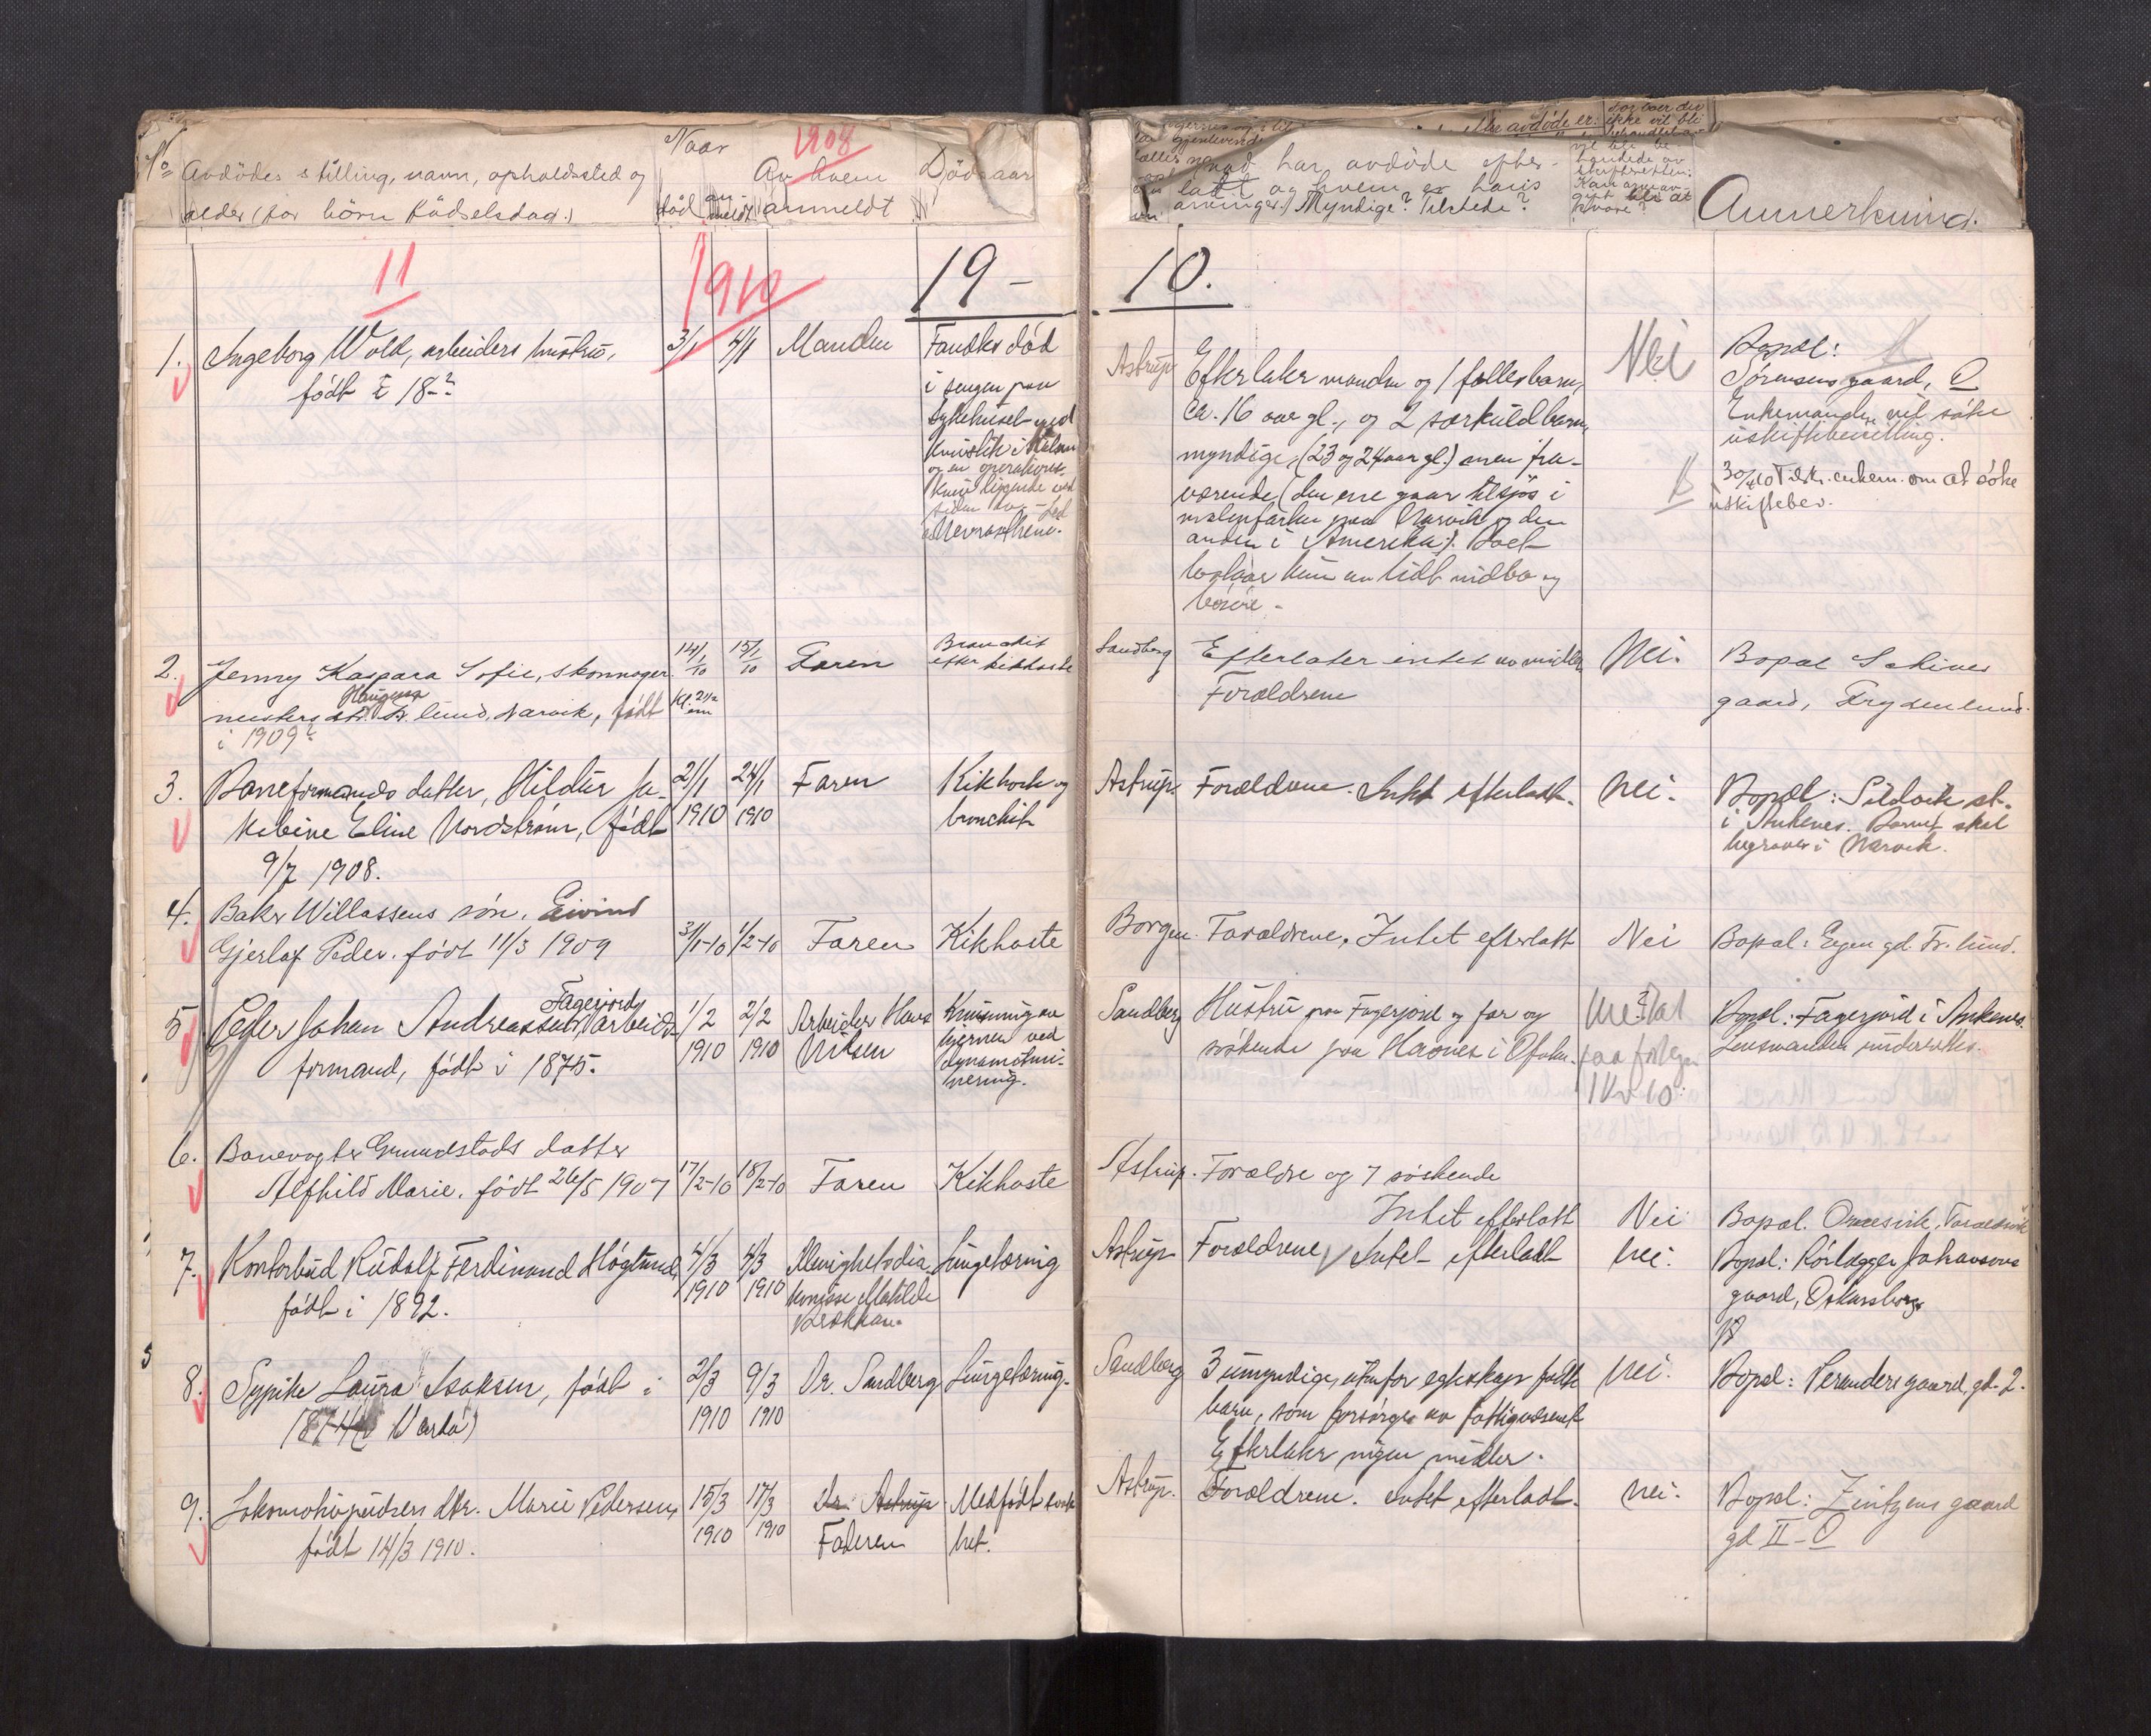 No Avdödes stilling, navn, opholdssted og
alder (for börn födselsdag.)
Naar
död an-meldt
1908
Av hvem
anmeldt
Dödsaar
hvad har avdöde efter-
latt og hvem er hans
arvinger? Myndige? Tilstede?
Anmerkning.
11
1910
19 -
10.
1. Ingeborg Wold, arbeiders hustru,
födt i 18-?
3/1 4/1 Manden
Fandtes död
i sengen paa
sykehuset med
og en
liggende ved
siden av
Astrup
Efterlater manden og 1 fællesbarn,
ca. 16 aar gl., og 2 særkuldbarn,
myndige, (23 og 24 aar gl.) men fra-
værende (den ene gaar tilsjös i
malmfarten paa Narvik og den
anden i Amerika). Boet
bestaar kun av lidt indbo og
Nei
Bopæl:
Sörensens gaard, O
Enkemanden vil söke
uskiftebevilling.
30/4 10 Tilskr. enkem. om at söke
uskiftebev.
2. Jenny Kaspara Sofie, skomager-
Haugens
mesters dtr. Fr.lund, Narvik, födt
i 1909?
14/1 10 15/1 10 Faren
Bronchit
efter kikhoste
Sandberg
Efterlater intet av midler
Forældrene
Nei.
Bopæl
gaard, Frydenlund.
3. Baneformands datter, Hildur Ja-
kobine Eline Nordström, födt
9/7 1908.
21/1 1910 24/1 1910 Faren
Kikhoste og
bronchit
Astrup.
Forældrene. Intet efterladt.
Nei.
Bopæl: Sildvik st.
i Ankenes. Barnet skal
begraves i Narvik.
4. Baker Willassens sön, Eivind
Gjerlaf Peder. födt 11/3 1909
31/1-10 1/2-10 Faren Kikhoste
Borgen. Forældrene. Intet efterlatt
Nei
Bopæl: Egen gd. Fr.lund.
Fagerjord
5. Peder Johan Andreassen, arbeids-
formand, födt i 1875.
1/2 1910 2/2 1910
Arbeider Hans
Nilsen
Knusning av
hjernen ved
dynamitmi-
nering.
Sandberg
Hustru paa Fagerjord og far og
söskende paa Haanes i Ofoten.
1 Kr 10
Bopæl: Fagerjord i Ankenes.
Lensmanden underrettes.
6. Banevogter Grundstads datter
Alfhild Marie. födt 26/5 1907
17/2-10 18/2-10 Faren Kikhoste
Astrup. Forældre og 7 söskende
Intet efterlatt
Nei
Bopæl.
7. Kontorbud Rudolf Ferdinand Höglund,
födt i 1892.
4/3 1910 4/3 1910
Menighetsdia-
konisse Matilde
Lungetæring
Astrup
Forældrene, Intet efterladt
Nei.
Bopæl: Rörlægger Johansens
gaard, Oskarsborg
8. Sypike Laura Isaksen, födt i
1874 (i Vardö)
2/3 1910 9/3 1910
Dr. Sandberg Lungetæring.
Sandberg
3 umyndige, utenfor egteskap födte
barn, som forsörges av fattigvæsenet
Efterlater ingen midler.
Nei.
Bopæl: gaard, gd. 2.
9. Lokomotivpudsers dtr. Marie Pedersen,
födt 14/3 1910.
15/3 1910 17/3 1910
Dr. Astrup
Faderen
Medfödt svak-
het.
Astrup.
Forældrene. Intet efterladt.
Nei.
Bopæl: Zintzens gaard
gd II - O